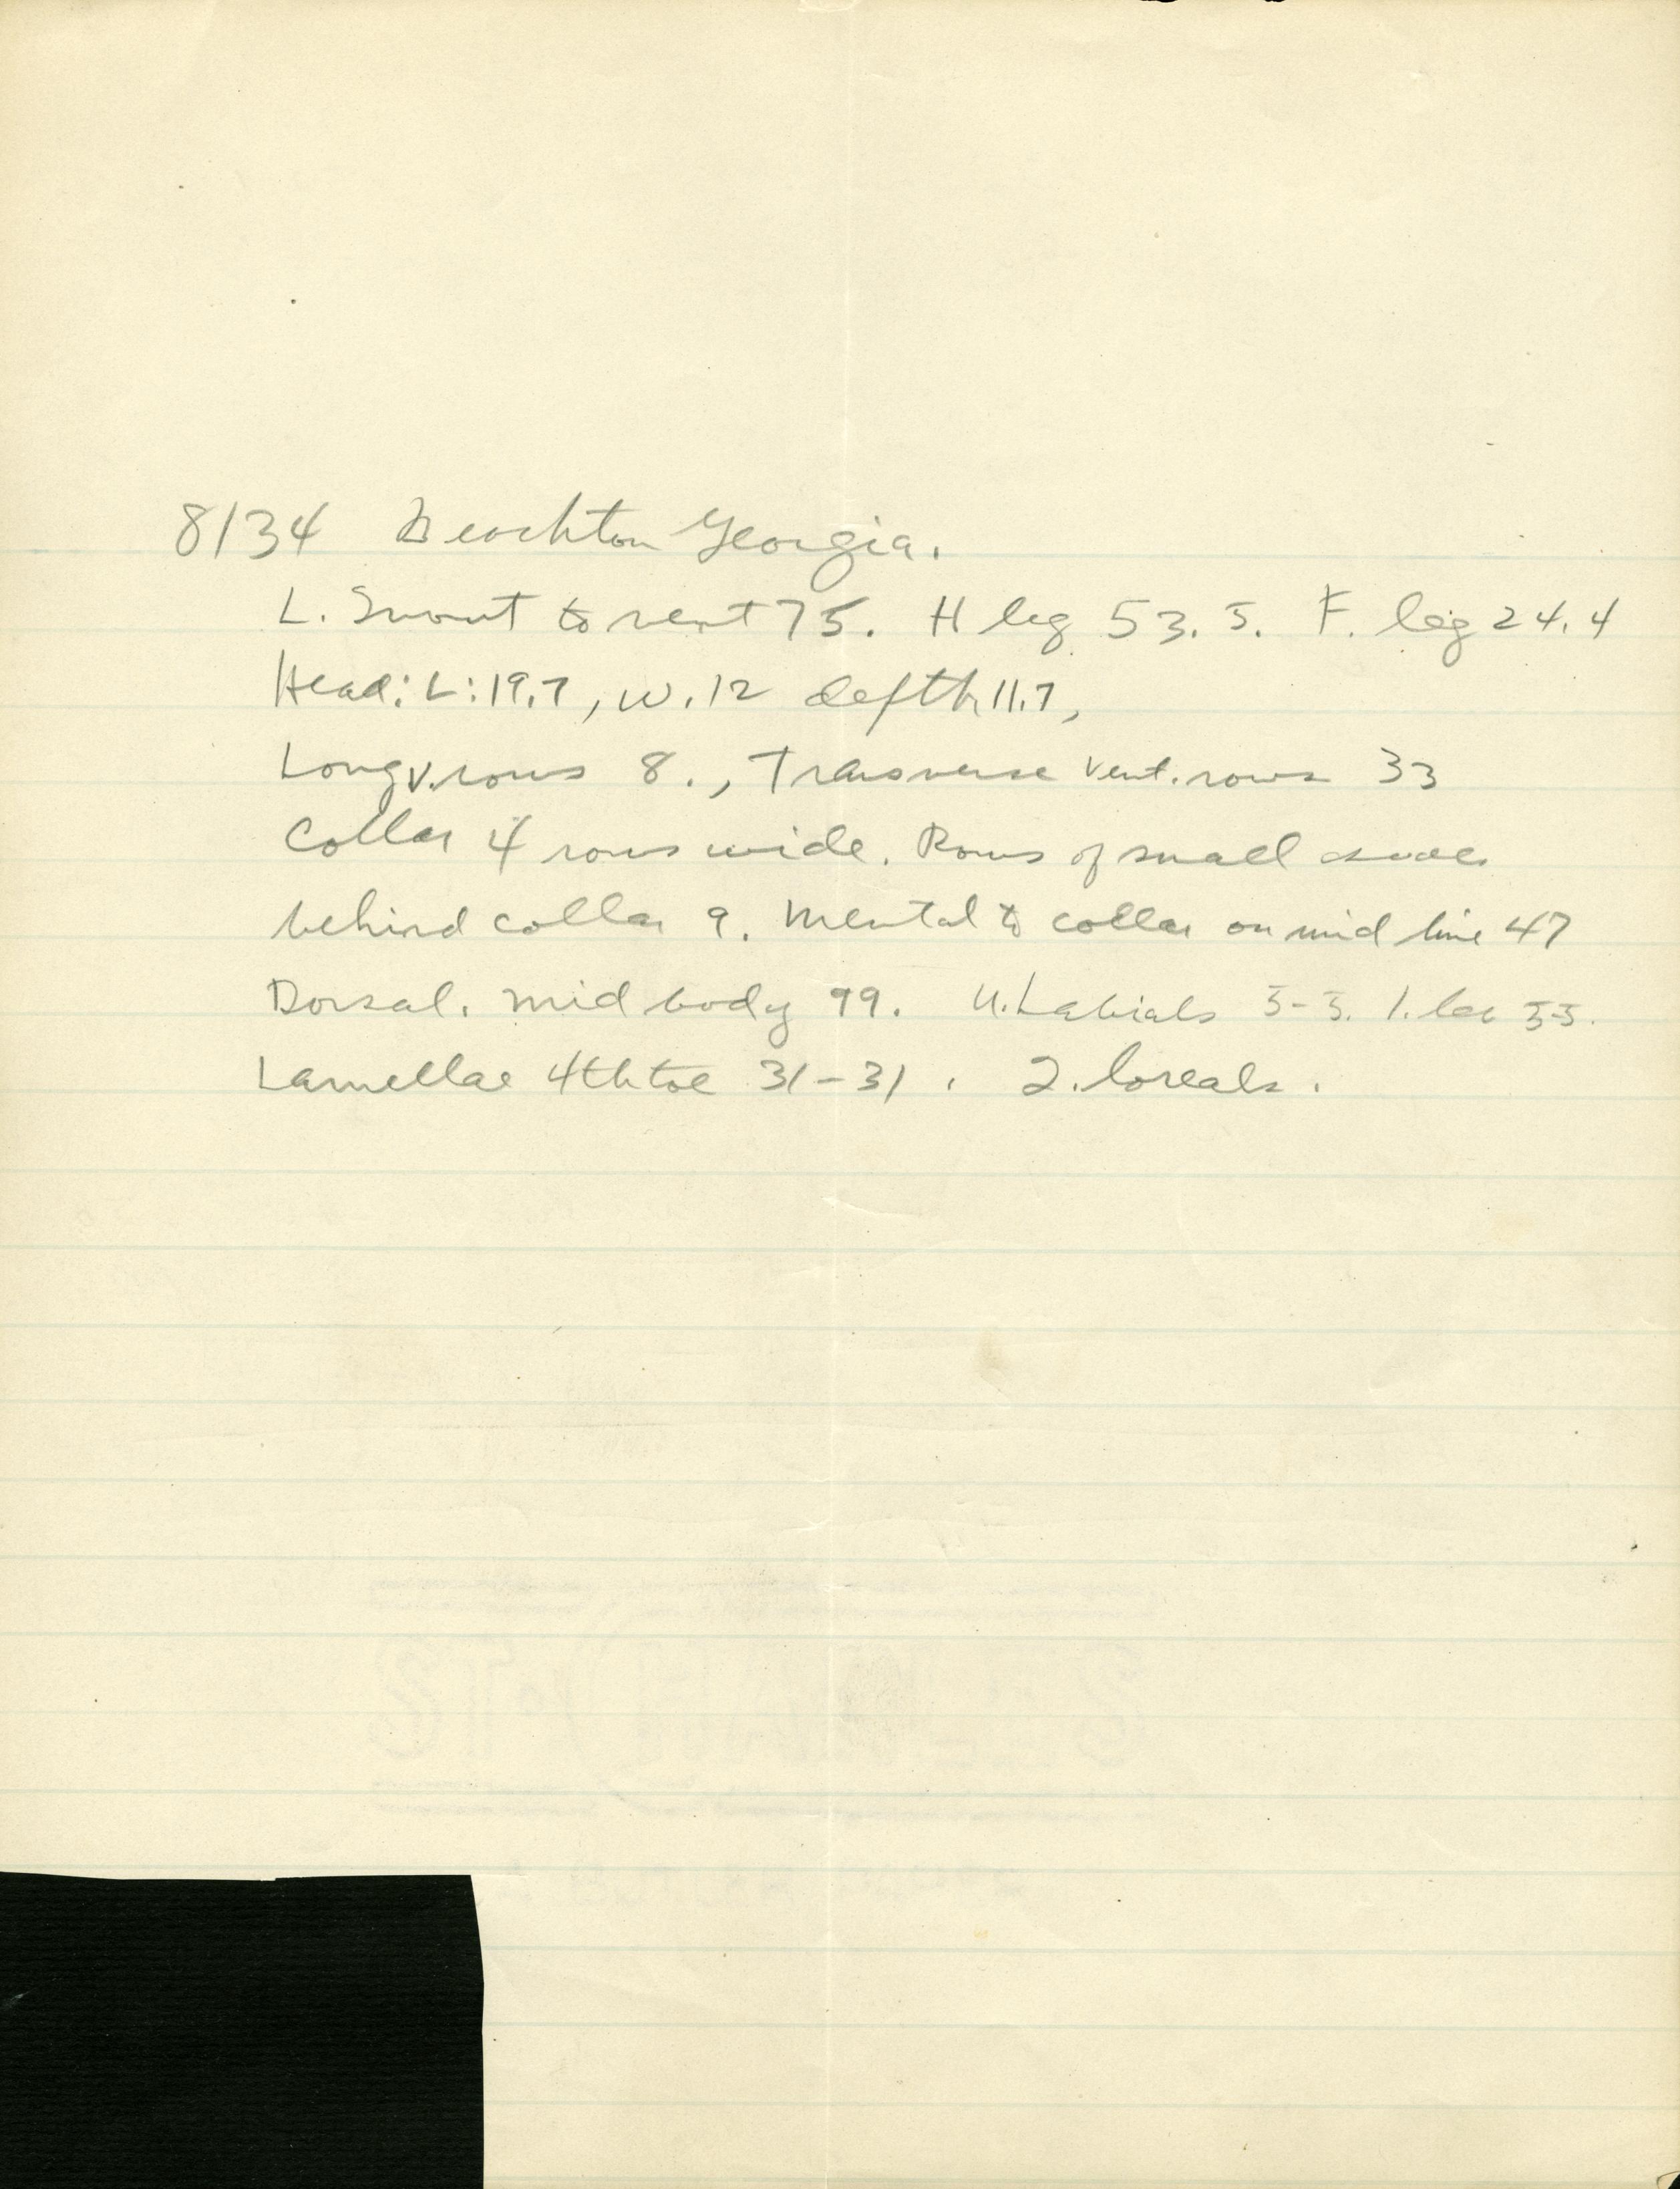 8134 Beachton Georgia.
L. Snout to vent 75. H leg 53.5. F. leg 24.4
Head: L: 19.7, W. 12 depth 11.7,
Long v. rows 8., Transverse vent. rows 33
Collar 4 rows wide. Rows of small scales
behind collar 9. Mental to collar on mid line 47
Dorsal. mid body 99. U. Labials 5-5. l. lab 5-5.
Lamellae 4th toe 31-31. 2. loreals.